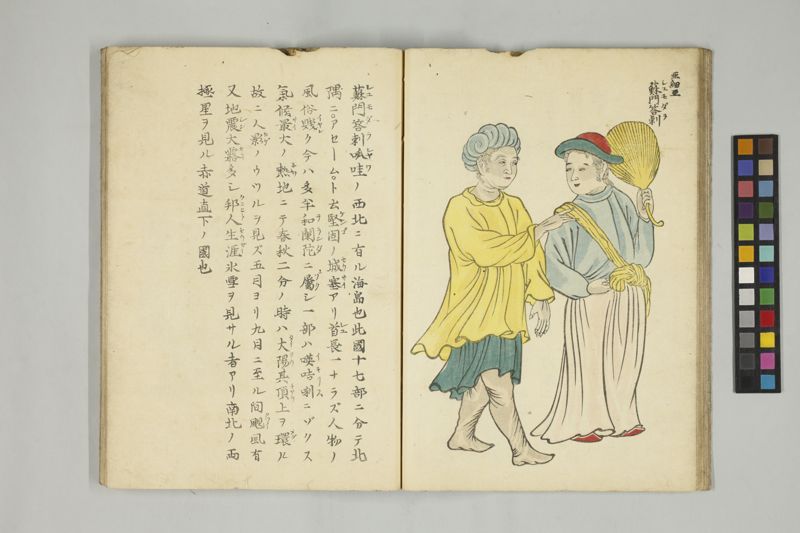 亜細亜
蘇門答剌
シュモダラ
蘇門答剌呱哇ノ西北ニ有ル海島也此國十七部ニ分テ北
隅ニアセームト云堅固ノ城塞アリ酋長一ナラズ人物ノ
風俗賤ク今ハ多半和蘭陀ニ屬シ一部ハ暎咭唎ニゾクス
氣候最大ノ熱地ニテ春秋二分ノ時ハ大陽其頂上ヲ環ル
故ニ人影ノウツルヲ見ズ五月ヨリ九月ニ至ル間颶風有
又地震大霧多シ邦人生涯氷雪ヲ見サル者アリ南北ノ両
極星ヲ見ル赤道直下ノ國也